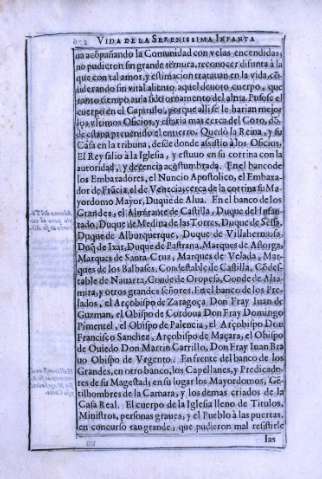 VIDA DE LA SERENISSIMA INFANTA
ua acompañando la Comunidad con velas encendidas,
no pudieron sin grande ternura, reconocer difunta à la
que con tal amor, y estimacion tratauan en la vida, cõ-
siderando sin vital aliento aquel deuoto cuerpo, que
tanto tiempo auia sido ornamento del alma. Pusose el
cuerpo en el Capitulo, porque alli se le harian mejor
los vltimos Oficios, y estaria mas cerca del Coro, dõ-
de estaua preuenido el entierro. Quedò la Reina, y su
Casa en la tribuna, desde donde assistio à los Oficios.
El Rey salio à la Iglesia, y estuuo en su cortina con la
autoridad, y decencia acostumbrada. En el banco de
los Embaxadores, el Nuncio Apostolico, el Embaxa-
dor de Frãcia, el de Venecia; cerca de la cortina su Ma-
yordomo Mayor, Duque de Alua. En el banco de los
Grandes, el Almirante de Castilla, Duque del Infan-
tado, Duque de Medina de las Torres, Duque de Sessa,
Duque de Alburquerque, Duque de Villahermosa,
Duq̃ de Ixar, Duque de Pastrana, Marques de Astorga,
Marques de Santa Cruz, Marques de Velada, Mar-
ques de los Balbases, Condestable de Castilla, Cõdes-
table de Nauarra, Conde de Oropesa, Conde de Alta-
mira, y otros grandes señores. En el banco de los Pre-
lados, el Arçobispo de Zaragoça, Don Fray Iuan de
Guzman, el Obispo de Cordoua Don Fray Domingo
Pimentel, el Obispo de Palencia, el Arçobispo Don
Francisco Sanchez, Arçobispo de Maçara, el Obispo
de Ouiedo Don Martin Carrillo, Don Fray Iuan Bra
uo Obispo de Vgento. Enfrente del banco de los
Grandes, en otro banco, los Capellanes, y Predicado-
res de su Magestad; en su lugar los Mayordomos, Gẽ-
tilhombres de la Camara, y los demas criados de la
Casa Real. El cuerpo de la Iglesia lleno de Titulos,
Ministros, personas graues, y el Pueblo à las puertas,
en concurso tan grande, que pudieron mal resistirle
las